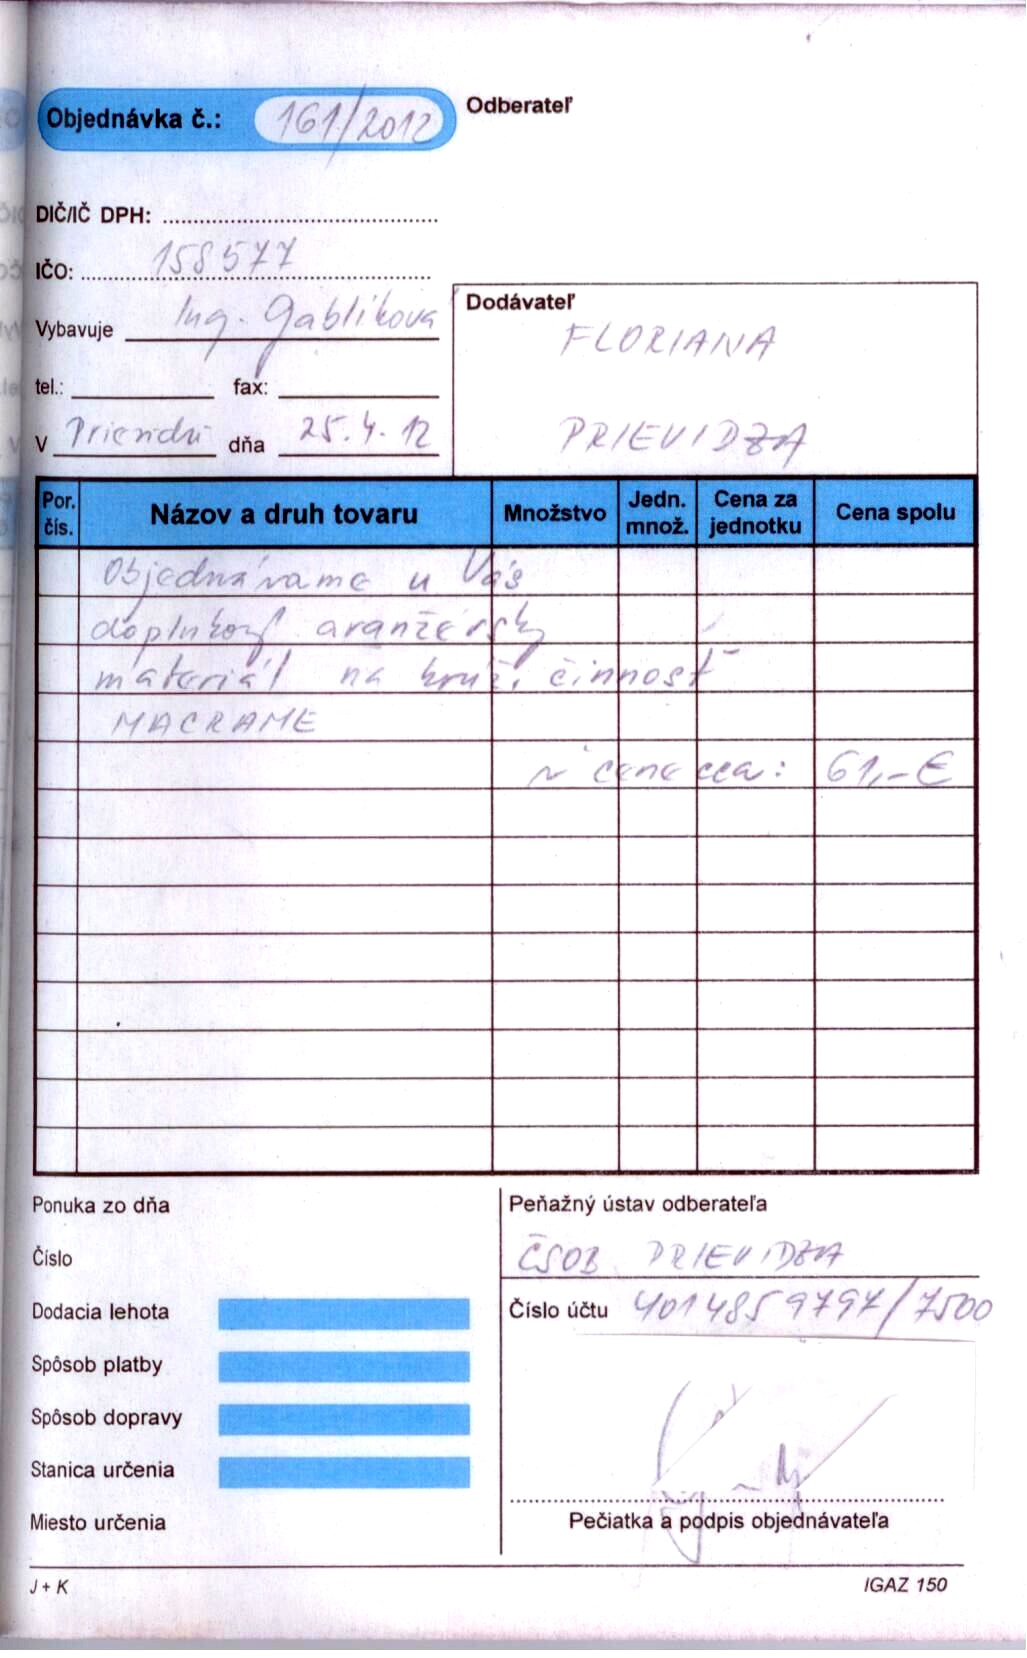 Objednávka č.: 161/2012
Odberateľ
DIČ/IČ DPH:
IČO: 158577
Vybavuje Ing. Gablíková
tel.: fax:
V Prievidzi dňa 25.4.12
Dodávateľ
FLORIANA
PRIEVIDZA
Por. čís. Názov a druh tovaru Množstvo Jedn. množ. Cena za jednotku Cena spolu
Objednávame u Vás
doplnkový aranžérsky
materiál na kruž. činnosť
MACRAME
v cene cca: 61,-€
Ponuka zo dňa
Číslo
Dodacia lehota
Spôsob platby
Spôsob dopravy
Stanica určenia
Miesto určenia
Peňažný ústav odberateľa
ČSOB PRIEVIDZA
Číslo účtu 4014859797/7500
Pečiatka a podpis objednávateľa
J + K
IGAZ 150